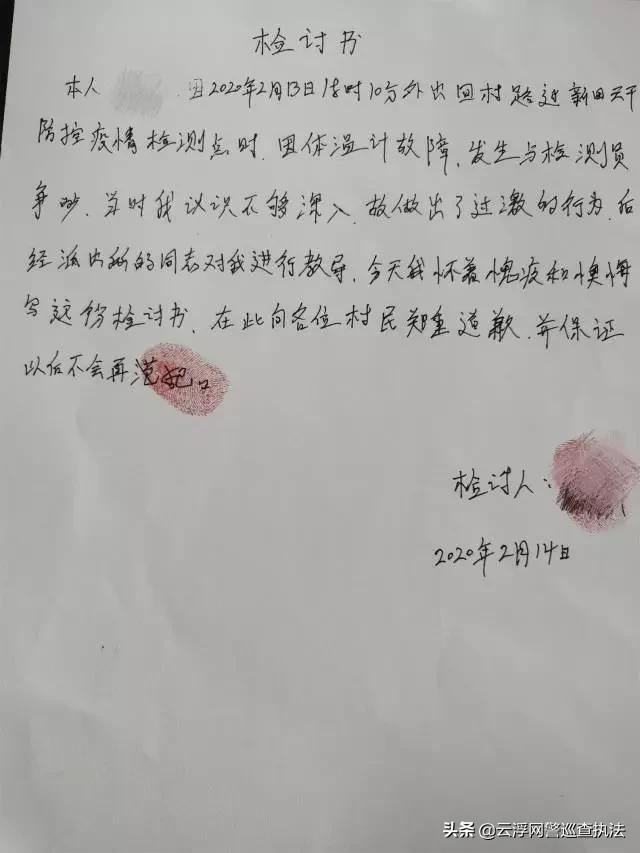 检讨书
本人 因2020年2月13日18时10分外出回村路过新田天干
防控疫情检测点时，因体温计故障，发生与检测员
争吵，当时我议识不够深入，故做出了过激的行为，后
经派出所的同志对我进行教导，今天我怀着愧疚和懊悔
写这份检讨书，在此向各位村民郑重道歉，并保证
以后不会再范。
检讨人：
2020年2月14日
头条 @云浮网警巡查执法